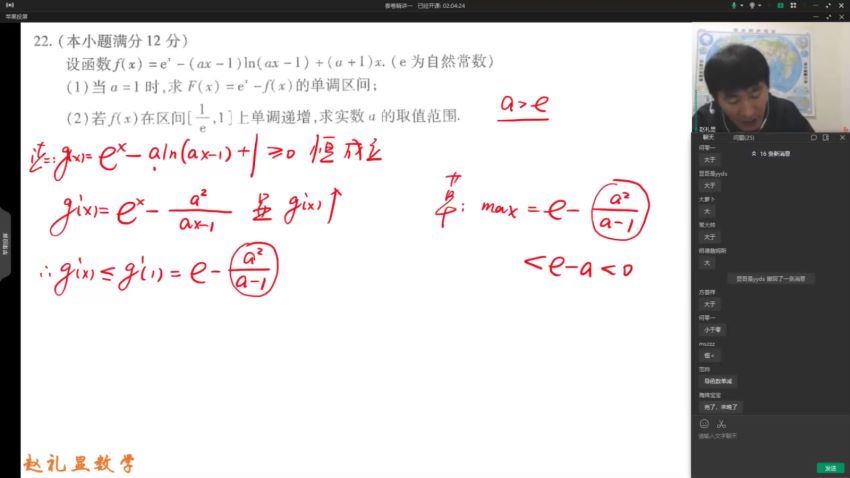 春季精讲一 已经开课: 02:04:24
苹果投屏
22.(本小题满分 12 分)
设函数 f(x)=eˣ-(ax-1)ln(ax-1)+(a+1)x.(e 为自然常数)
(1)当 a=1 时,求 F(x)=eˣ-f(x)的单调区间;
(2)若 f(x)在区间[1/e,1]上单调递增,求实数 a 的取值范围.
a>e
法二:g(x)=eˣ-aln(ax-1)+1≥0 恒成立
g'(x)=eˣ-a²/(ax-1) 显 g'(x)↑
∴g'(x)≤g'(1)=e-a²/(a-1)
草: max=e-a²/(a-1)
<e-a<0
赵礼显数学
赵礼显
聊天 问题(25)
16 条新消息
何零一
大于
昱哥是yyds
大于
大萝卜
大
大于
大
昱哥是yyds 撤回了一条消息
方蔷祥
大于
何零一
小于零
muzzz
恒<
范帅
导函数单减
完了，来晚了
请输入文字聊天
发送